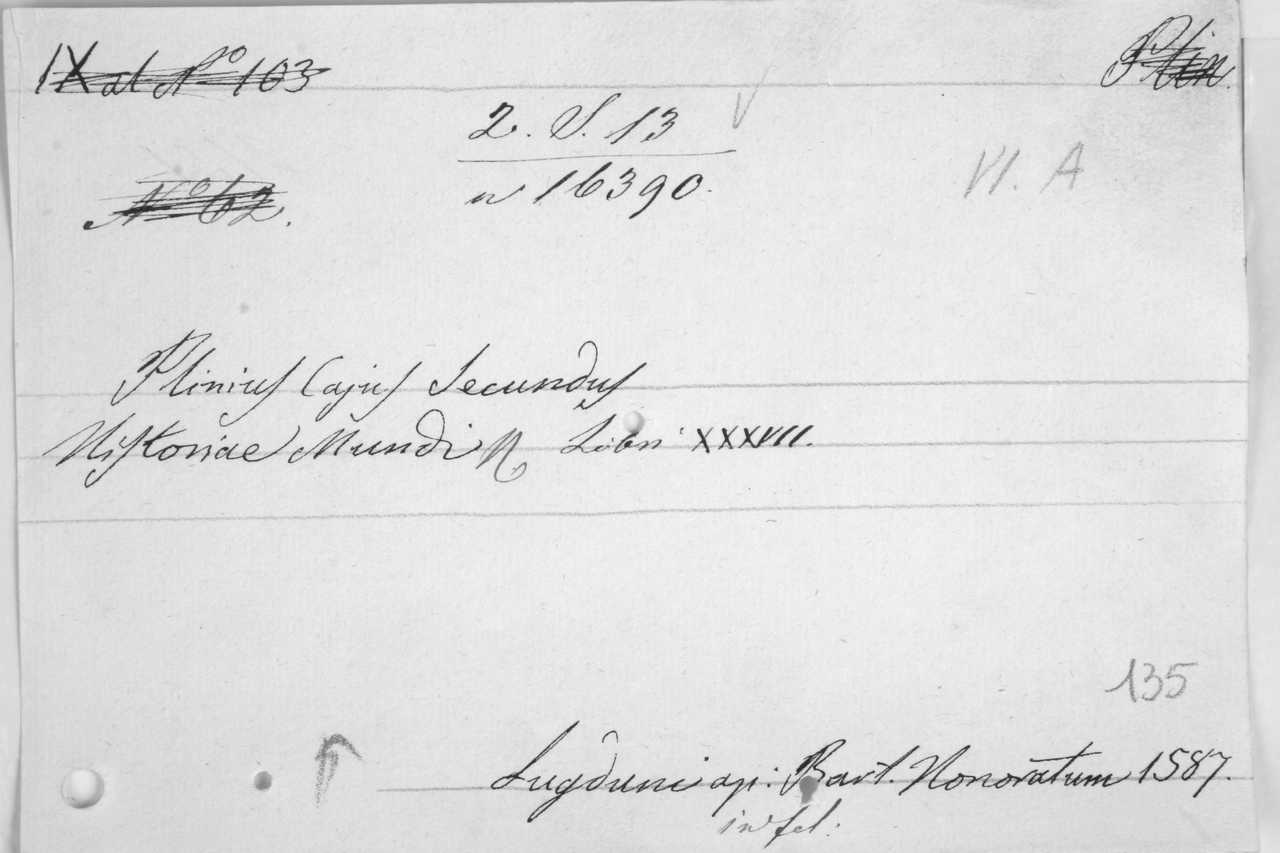 IX at No 103
Plin.
2. S. 13
n 16390.
VI. A
No 62.
Plinius Cajus Secundus
Historiae Mundi Libri XXXVII.
135
Lugduni ap: Bart. Honoratum 1587.
in fol: